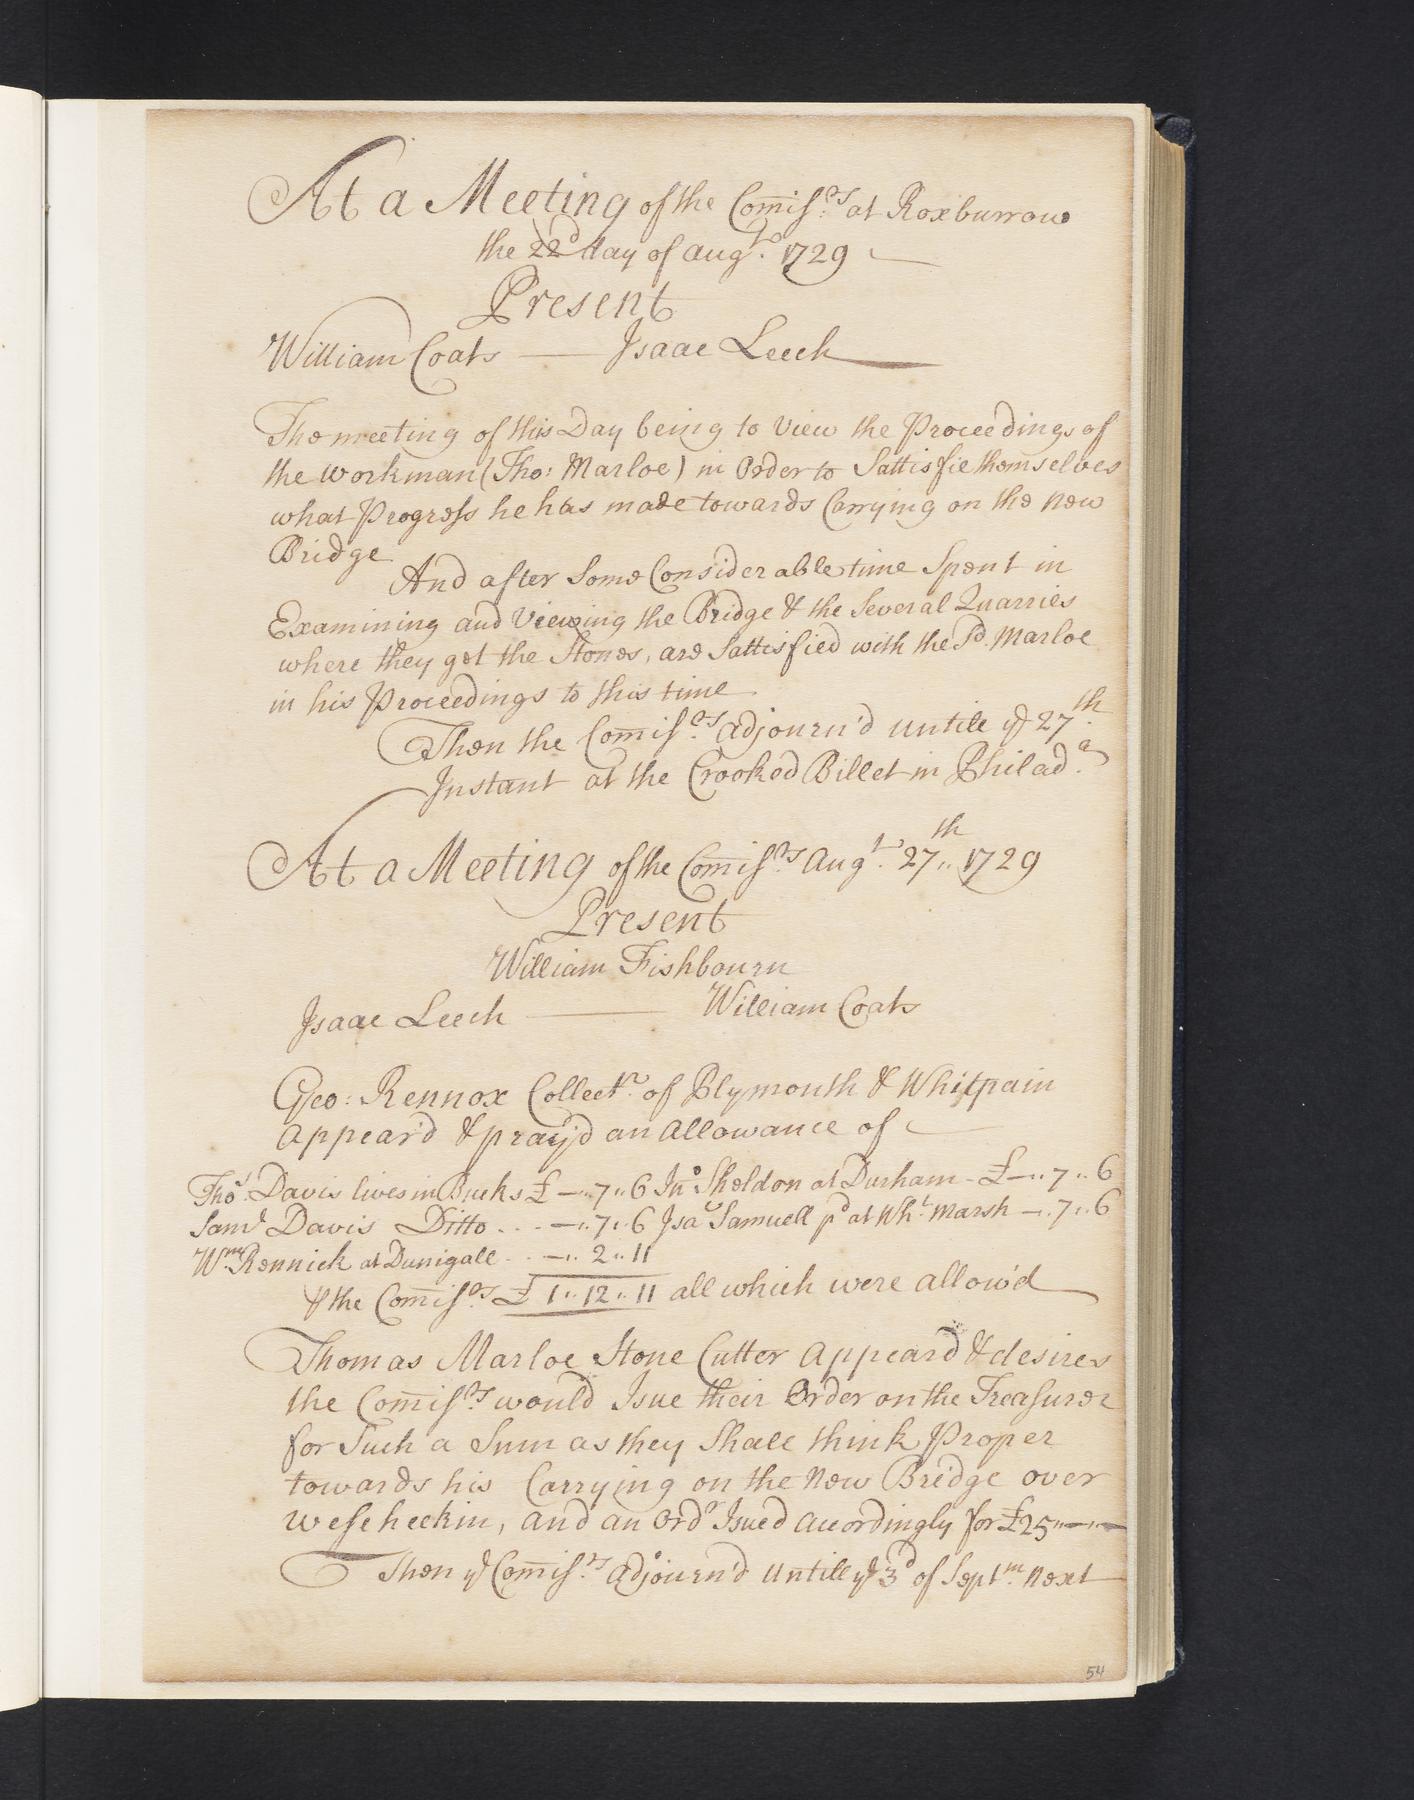 At a Meeting of the Comiss:rs at Roxburrow
the 22d day of Augt. 1729
Present
William Coats — Isaac Leech
The meeting of this Day being to View the Proceedings of
the workman (Tho: Marloe) in Order to Sattisfie themselves
what Progress he has made towards Carrying on the New
Bridge
And after Some Considerable time Spent in
Examining and Viewing the Bridge & the Several Quarries
where they get the Stones, are Sattisfied with the Sd. Marloe
in his Proceedings to this time.
Then the Comiss:rs Adjourn'd untill ye 27th.
Instant at the Crooked Billet in Philada.
At a Meeting of the Comiss:rs Augt. 27th 1729
Present
William Fishbourn
Isaac Leech — William Coats
Geo: Rennox Collectr. of Plymouth & Whitpain
Appear'd & pray'd an Allowance of
Thos. Davis lives in Bucks £ —"7"6 Jno Sheldon at Durham - £ —"7"6
Saml Davis Ditto - - - —"7"6 Isac Samuell pd at Wht. Marsh —"7"6
Wm. Rennick at Dunigall - - —"2"11
& the Comiss:rs £ 1"12"11 all which were allow'd
Thomas Marloe Stone Cutter Appeard & desires
the Comiss:rs would Isue their Order on the Treasurer
for Such a Sum as they Shall think Proper
towards his Carrying on the New Bridge over
Weseheckin, and an Ordr Isued Acordingly for £25"—"—
Then ye Comiss:rs Adjourn'd Untill ye 3d of Septm. Next
54